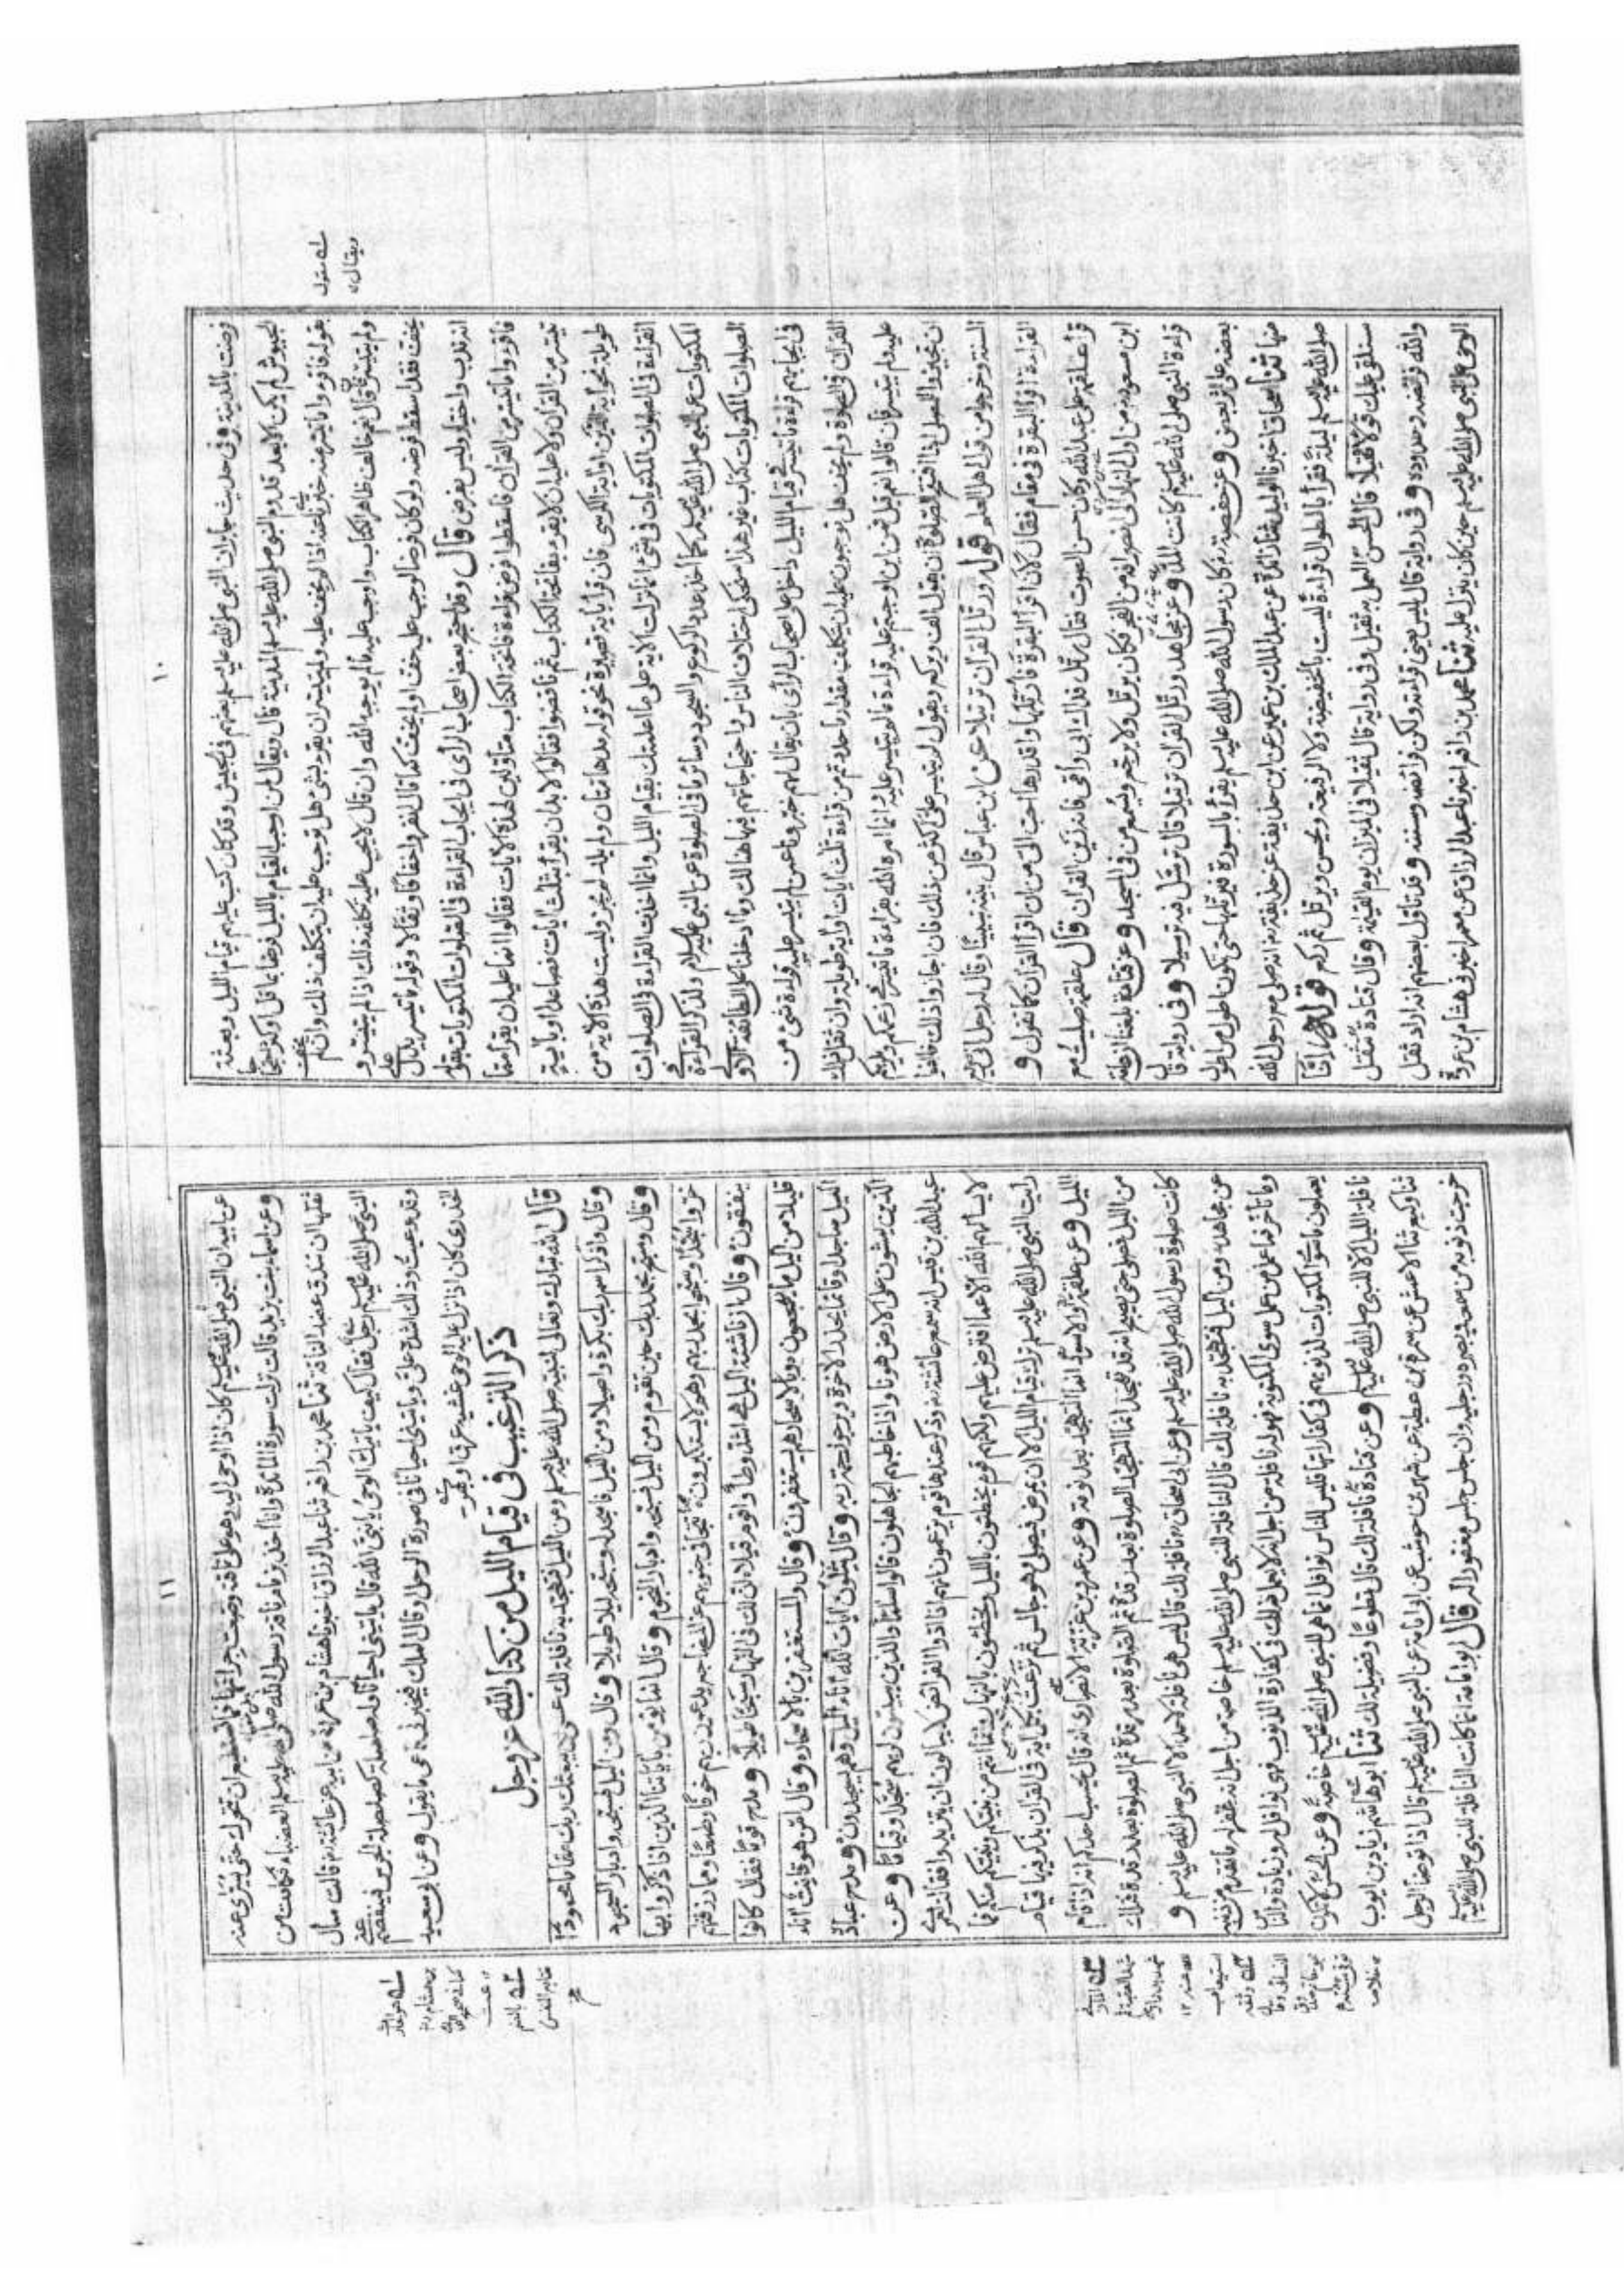 ١٠
فرضت بالمدينة وفى حديث جابر ان النبي صلى الله عليه وسلم بعثهم فى جيش وقد كان كتب عليهم قيام الليل وبعثة
الجيوش لم يكن الا بعد قدوم النبي صلى الله عليه وسلم المدينة قال ويقال لمن اوجب القيام بالليل فرضا بما قل او كثر احتجاجا
بقوله فاقرءوا ما تيسر منه خبرنا عنه اذا لم يخف عليه ولم يتيسر ان يقرء بشئ هل توجب عليه ان يتكلف ذلك وان لم يخف
ولم يتيسر فان قال نعم خالف ظاهر الكتاب واوجب عليه ما لم يوجبه الله وان قال لا يجب عليه تكلفه ذلك اذا لم يتيسر و
يخف فقد اسقط فرضه ولو كان فرضا لوجب عليه خف او لم يخف كما قال انفروا خفافا وثقالا وقوله ما تيسر يدل على
انه ندب واختيار وليس بفرض قال وقد احتج بعض اصحاب الرأى فى ايجاب القراءة فى الصلوات المكتوبات بقوله
فاقرءوا ما تيسر من القرآن فاسقطوا فرض قراءة فاتحة الكتاب متأولين لهذه الآيات فقالوا انما عليه ان يقرأ ما
تيسر من القرآن ولا عليه ان لا يقرء بفاتحة الكتاب ثم ناقضوا فقالوا لا بد ان يقرأ بثلث آيات فصاعدا او بآية
طويلة نحو آية الدين او آية الكرسى فان قرأ بآية قصيرة نحو قوله مدهامتان ولم يلد لم يجز وليست هذه الآية من
القراءة فى الصلوات المكتوبات فى شئ انما نزلت الآية على ما اعلمتك بقيام الليل وانما اخذت القراءة فى الصلوات
المكتوبات عن النبي صلى الله عليه وسلم كما اخذ عدد الركوع والسجود وسائر ما فى الصلوة عن النبي عليه السلام ولذكر القراءة فى
الصلوات المكتوبات كتاب غير هذا سنحكى اختلاف الناس واحتجاجاتهم فيها هنالك وما ادخلنا على الطائفة الاولى
فى ايجابهم قراءة ما تيسر فى قيام الليل داخل على اصحاب الرأى بان يقال لهم خبرونا عمن لم يتيسر عليه قراءة شئ من
القرآن فى الصلوة ولم يخف هل توجبون عليه ان يتكلف مقدار ما حددتم من قراءة ثلث آيات او آية طويلة وان ثقل ذلك
عليه ولم يتيسر فان قالوا نعم قيل فمن اين اوجبتم عليه قراءة ما لم يتيسر عليه وانما امره الله بقراءة ما تيسر فى زعمكم ويلزمكم
ان تجيزوا للمصلى اذا افتتح الصلوة ان يقول الف ويركع ويقول لم يتيسر على اكثر من ذلك فان اجازوا ذلك خالفوا
السنة وخرجوا من قول اهل العلم قوله ورتل القرآن ترتيلا عن ابن عباس قال بينه تبيينا وقال له رجل انى سريع
القراءة اقرأ البقرة فى مقام فقال لان اقرأ البقرة فأرتلها واقدرها احب الى من ان اقرأ القرآن كما تقول و
قرأ علقمة على عبد الله وكان حسن الصوت فقال رتل فداك ابى وامى فانه زين القرآن قال علقمة صليت مع
ابن مسعود من اول النهار الى انصرافه من الفجر فكان يرتل ولا يرجع ويسمع من فى المسجد وعن قتادة بلغنا ان عامة
قراءة النبي صلى الله عليه وسلم كانت المد وعن مجاهد ورتل القرآن ترتيلا قال ترسل فيه ترسيلا وفى رواية قال
بعضه على اثر بعض وعن حفصة رض كان رسول الله صلى الله عليه وسلم يقرأ بالسورة فيرتلها حتى تكون اطول من اطول
منها ثنا اسحاق اخبرنا الوليد ثنا زائدة عن عبد الملك بن عمير عن ابن عم حذيفة عن حذيفة رض انه صلى مع رسول الله
صلى الله عليه وسلم ليلة فقرأ بالطول قراءة ليست بالخفيضة ولا الرفيعة ويحسن ويرتل ثم ركع قوله انا
سنلقى عليك قولا ثقيلا قال الحسن العمل به ثقيل وفى رواية قال ثقيلا فى الميزان يوم القيمة وقال قتادة تثقل
والله فرائضه وحدوده وفى رواية قال ليس يعنى قراءته ولكن فرائضه وسننه وقد تأول بعضهم انه اراد ثقل
الوحى على النبي صلى الله عليه وسلم حين كان ينزل عليه ثنا محمد بن رافع اخبرنا عبد الرزاق عن معمر اخبرنى هشام بن عروة
ويقال
١١
عن ابيه ان النبي صلى الله عليه وسلم كان اذا اوحى اليه وهو على ناقته وضعت جرانها فما تستطيع ان تتحرك حتى يسرى عنه
وعن اسماء بنت يزيد قالت نزلت سورة المائدة وانا اخذ بزمام ناقة رسول الله صلى الله عليه وسلم العضباء فكادت من
ثقلها ان تدق عضد الناقة ثنا محمد بن رافع ثنا عبد الرزاق اخبرنا هشام بن عروة عن ابيه عن عائشة رض قالت سأل
النبي صلى الله عليه وسلم رجل فقال كيف يأتيك الوحى يا نبى الله قال يأتينى احيانا وله صلصلة كصلصلة الجرس فينفصم عنى
وقد وعيت وذلك اشده على ويأتينى احيانا فى صورة الرجل او قال الملك فيخبرنى فاعى ما يقول وعن ابى سعيد
الخدرى كان اذا نزل عليه الوحى غشيه
ذكر الترغيب فى قيام الليل من كتاب الله عز وجل
قال الله تبارك وتعالى لنبيه صلى الله عليه وسلم ومن الليل فتهجد به نافلة لك عسى ان يبعثك ربك مقاما محمودا
وقال واذكر اسم ربك بكرة واصيلا ومن الليل فاسجد له وسبحه ليلا طويلا وقال ومن الليل فسبحه وادبار السجود
وقال وسبح بحمد ربك حين تقوم ومن الليل فسبحه وادبار النجوم وقال انما يؤمن بآياتنا الذين اذا ذكروا بها
خروا سجدا وسبحوا بحمد ربهم وهم لا يستكبرون تتجافى جنوبهم عن المضاجع يدعون ربهم خوفا وطمعا ومما رزقنهم
ينفقون وقال ان ناشئة الليل هى اشد وطأ واقوم قيلا ان لك فى النهار سبحا طويلا ومدح قوما فقال كانوا
قليلا من الليل ما يهجعون وبالاسحار هم يستغفرون وقال والمستغفرين بالاسحار وقال امن هو قانت آناء
الليل ساجدا وقائما يحذر الآخرة ويرجو رحمة ربه وقال يتلون آيات الله آناء الليل وهم يسجدون ومدح عباده
الذين يمشون على الارض هونا واذا خاطبهم الجاهلون قالوا سلاما والذين يبيتون لربهم سجدا وقياما وعن
عبد الله بن قيس انه سمع عائشة رض وذكر عندها قوم يزعمون انهم اذا ادوا الفرائض لا يبالون ان لا يتزيدوا فقالت لعمرى
لا يسألهم الله الا عما افترض عليهم ولكنهم قوم يخطئون بالليل ويخطئون بالنهار وانما انتم من نبيكم ونبيكم منكم فما
رأيت النبي صلى الله عليه وسلم ترك قيام الليل الا ان يمرض فيصلى وهو جالس ثم نزعت بكل آية فى القرآن يذكر فيها قيام
الليل وعن علقمة والاسود انما التهجد بعد نومة وعن عمرو بن غزية الانصارى انه قال يحسب احدكم انه اذا قام
من الليل فصلى حتى يصبح انه قد تهجد انما التهجد الصلوة بعد رقدة ثم الصلوة بعد رقدة ثم الصلوة بعد رقدة فتلك
كانت صلوة رسول الله صلى الله عليه وسلم وعن ابى اسحاق نافلة لك قال ليس هى نافلة لاحد الا للنبي صلى الله عليه وسلم و
عن مجاهد ومن الليل فتهجد به نافلة لك قال النافلة للنبي صلى الله عليه وسلم خاصة من اجل انه غفر له ما تقدم من ذنبه
وما تأخر فما عمل من عمل سوى المكتوبة فهو له نافلة من اجل انه لا يعمل ذلك فى كفارة الذنوب فهى نوافل له وزيادة والناس
يعملون ما سوى المكتوبات لذنوبهم فى كفارتها فليس للناس نوافل انما هى للنبي صلى الله عليه وسلم خاصة وعن الحسن لا تكون
نافلة الليل الا للنبي صلى الله عليه وسلم وعن قتادة نافلة لك قال تطوعا وفضيلة لك ثنا ابو هاشم زياد بن ايوب
ثنا وكيع ثنا الاعمش عن شمر بن عطية عن شهر بن حوشب عن ابى امامة عن النبي صلى الله عليه وسلم قال اذا توضأ الرجل
خرجت ذنوبه من سمعه وبصره ورجليه وان جلس جلس مغفورا له قال ابو امامة انما كانت النافلة للنبي صلى الله عليه وسلم